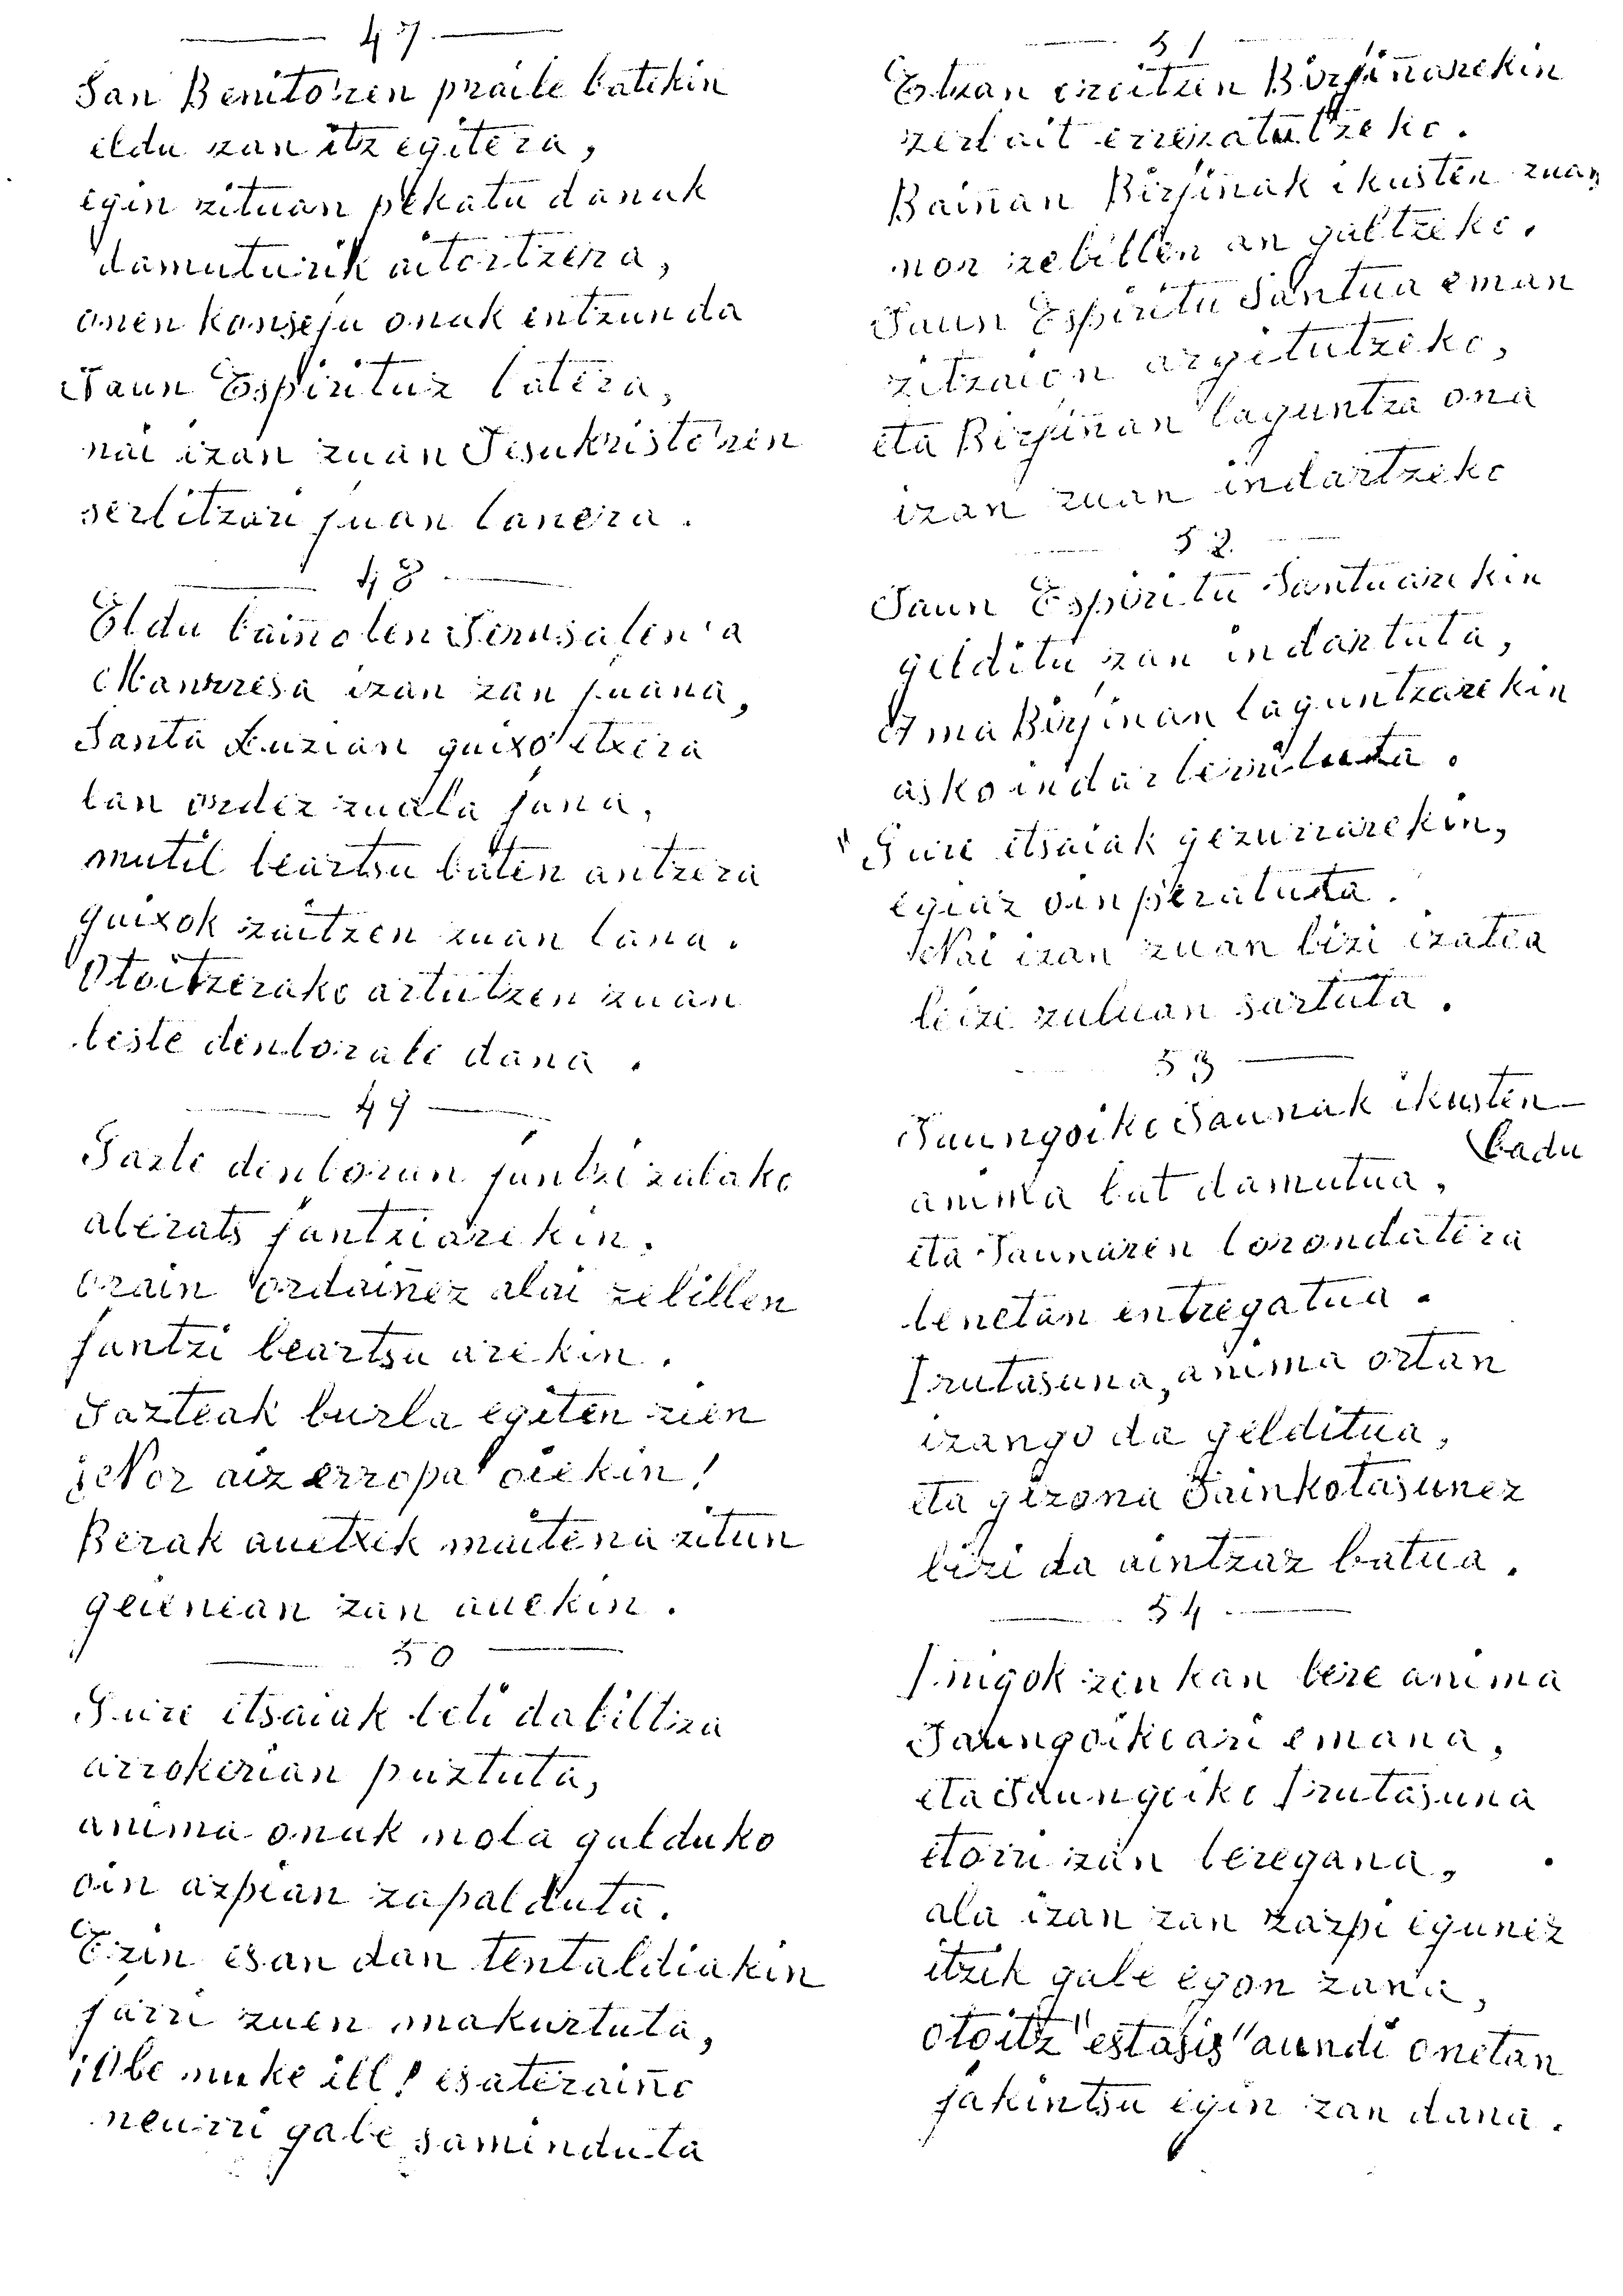 47
San Benito'ren praile batekin
eldu zan itzegitera,
egin zituan pekatu danak
damuturik aitortzera,
onen konseju onak entzunda
Jaun Espirituz batera,
nai izan zuan Jesukristo'ren
serbitzari juan lanera.
48
Eldu baiño len Jerusalen'a
Manrresa izan zan juana,
Santa Luzian gaixo etxera
lan ordez zuala jana,
mutil beartsu baten antzera
gaixok zaitzen zuan lana.
Otoitzerako artutzen zuan
beste denborali dana.
49
Gazte denboran jantzi zalako
aberats jantziarekin.
orain ordaiñez alai zebillen
jantzi beartsu arekin.
Gazteak burla egiten zien
¡Nor aiz erropa oiekin!
Berak auetxek maitena zitun
geienian zan auekin.
50
Gure etsaiak beti dabiltza
arrokerian puztuta,
anima onak nola galduko
oin azpian zapalduta.
Ezin esan dan tentaldiakin
jarri zuen makurtuta,
¡Obe nuke ill! esateraiño
neurri gabe saminduta
51
Etzan ereitzen Birjiñarekin
zerbait errezatutzeko.
Baiñan Birjiñak ikusten zuan
nor zebillen an galtzeko.
Jaun Espiritu Santua eman
zitzaion argitutzeko,
eta Birjiñan laguntza ona
izan zuan indartzeko
52
Jaun Espiritu Santuarekin
gelditu zan indartuta,
Ama Birjinan laguntzarekin
asko indarberrituta.
"Gure etsaiak gezurrarekin,
egiaz oinperatuta.
Nai izan zuan bizi izatea
leize zuluan sartuta.
53
Jaungoiko Jaunak ikusten
badu
anima bat damutua,
eta Jaunaren borondatera
benetan entregatua.
Irutasuna, anima ortan
izango da gelditua,
eta gizona Jainkotasunez
bizi da aintzaz batua.
54
Inigok zeukan bere anima
Jaungoikoari emana,
eta Jaungoiko Irutasuna
etorri zan beregana,
ala izan zan zazpi egunez
itzik gabe egon zana,
otoitz "estasis" aundi onetan
jakintsu egin zan dana.